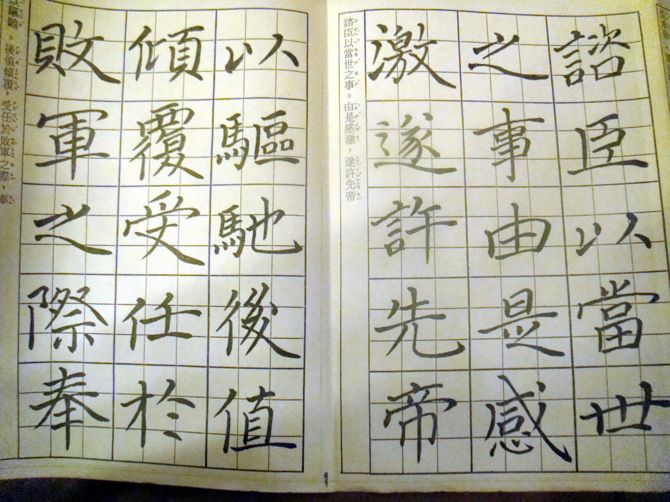 諮臣以當世
之事由是感
激遂許先帝
諮臣以當世之事。由是感激，遂許先帝
以驅馳後值
傾覆受任於
敗軍之際奉
以驅馳。後值傾覆，受任於敗軍之際，奉